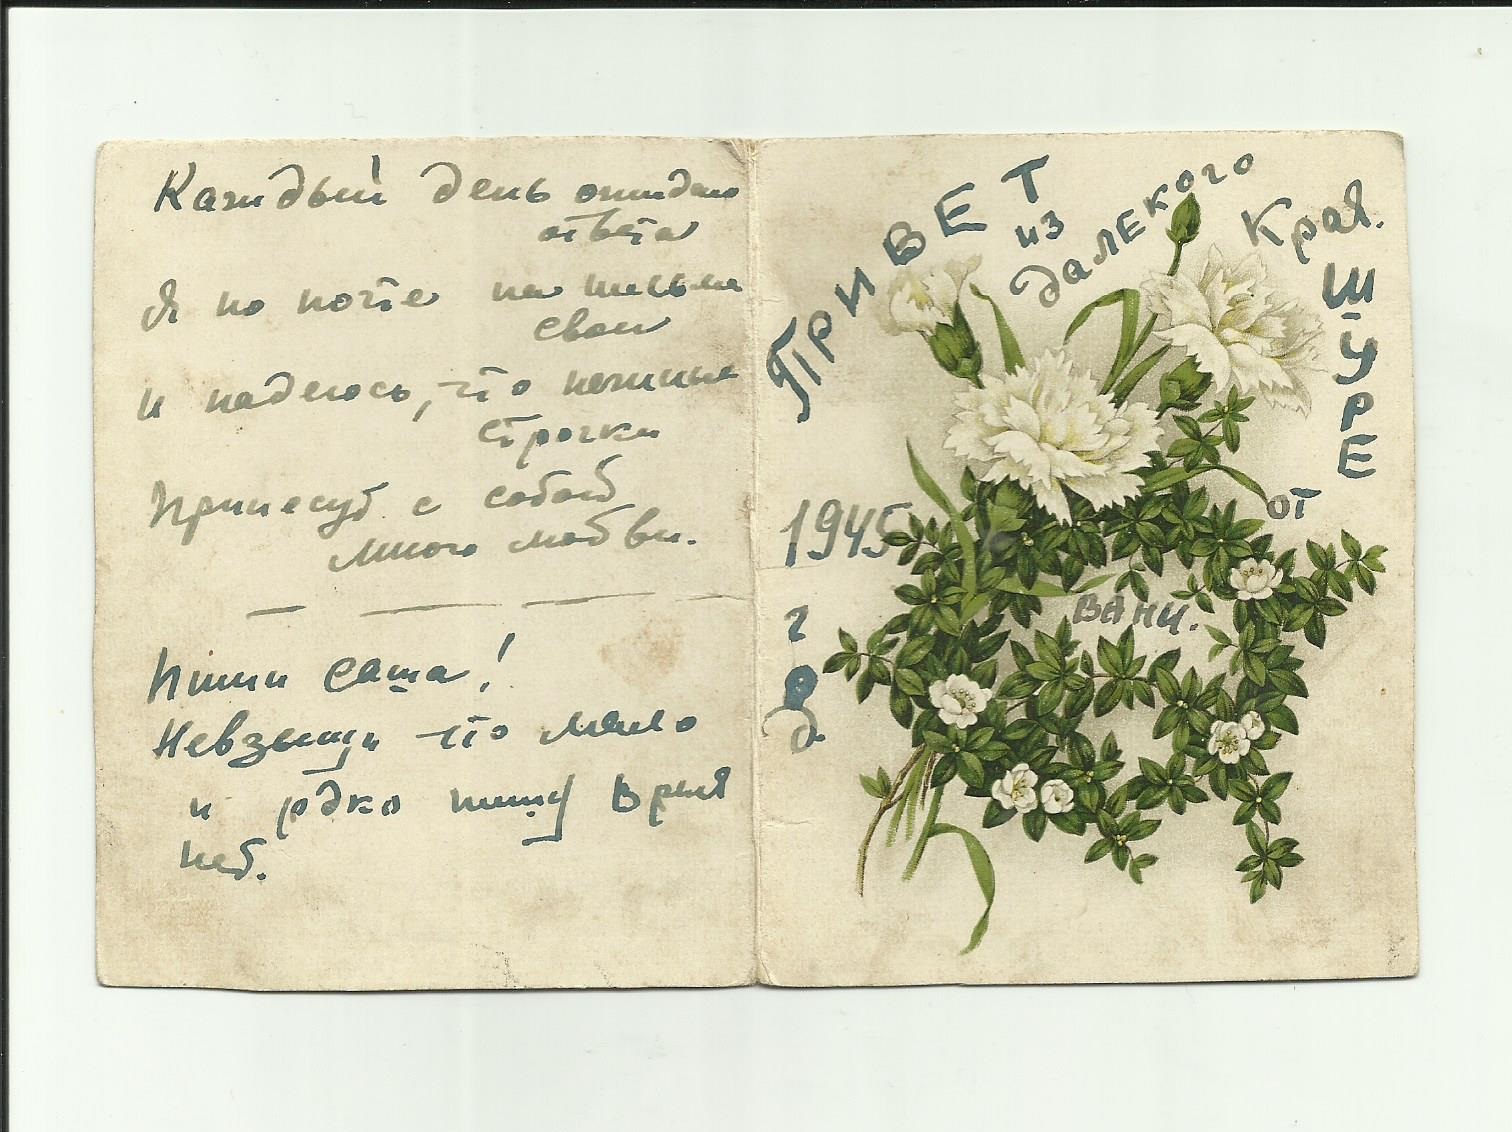 Каждый день ожидаю
ответа
Я по почте на письма
свои
и надеюсь, что нежные
строчки
Принесут с собой
много любви.
Пиши Саша!
Невзыщи что мало
и рдко пишу Время
нет.
ПРИВЕТ
из
далекого
Края.
ШУРЕ
от
ВАНИ.
1945
г
о
д.